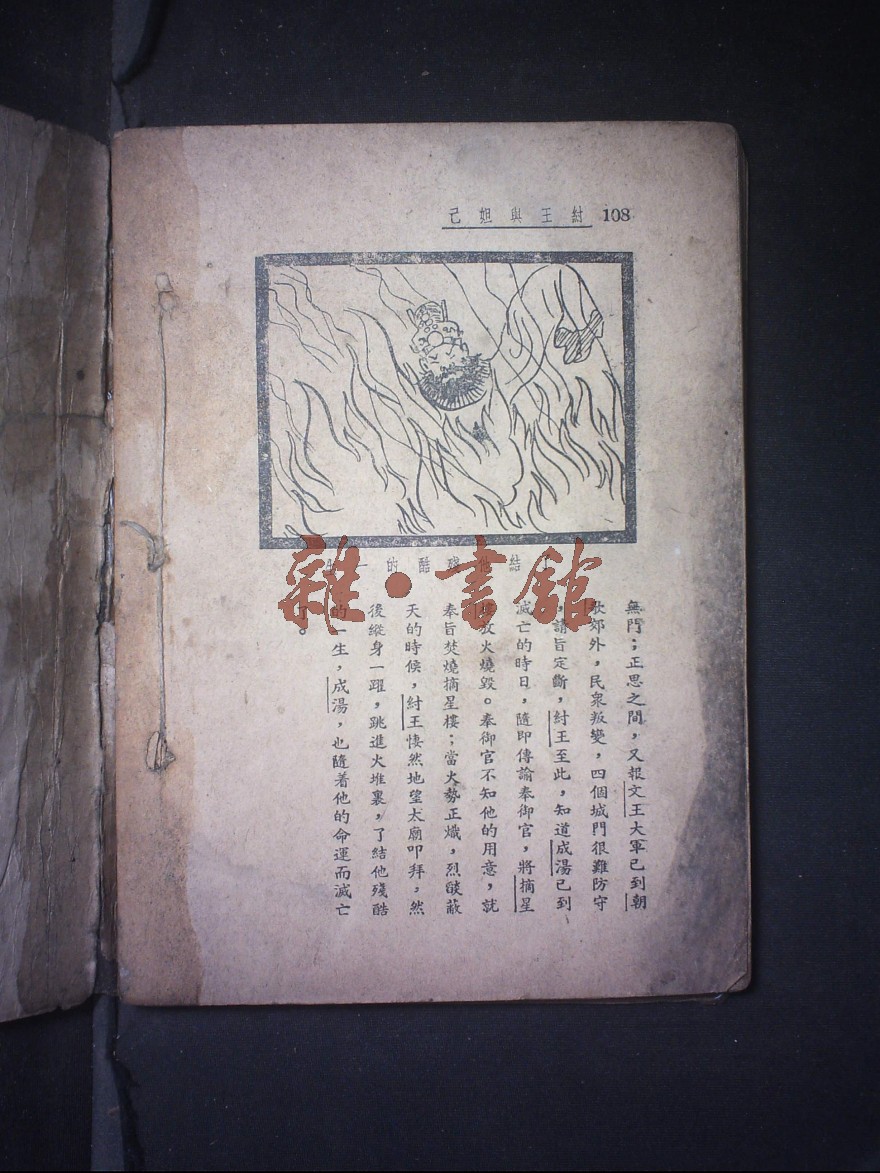 108 紂王與妲己
結他殘酷的一
無門；正思之間，又報文王大軍已到朝
歌郊外，民衆叛變，四個城門很難防守
，請旨定斷，紂王至此，知道成湯已到
滅亡的時日，隨即傳諭奉御官，將摘星
放火燒毀。奉御官不知他的用意，就
奉旨焚燒摘星樓；當火勢正熾，烈燄蔽
天的時候，紂王悽然地望太廟叩拜，然
後縱身一躍，跳進火堆裏，了結他殘酷
的一生，成湯，也隨着他的命運而滅亡
了。
雜·書館